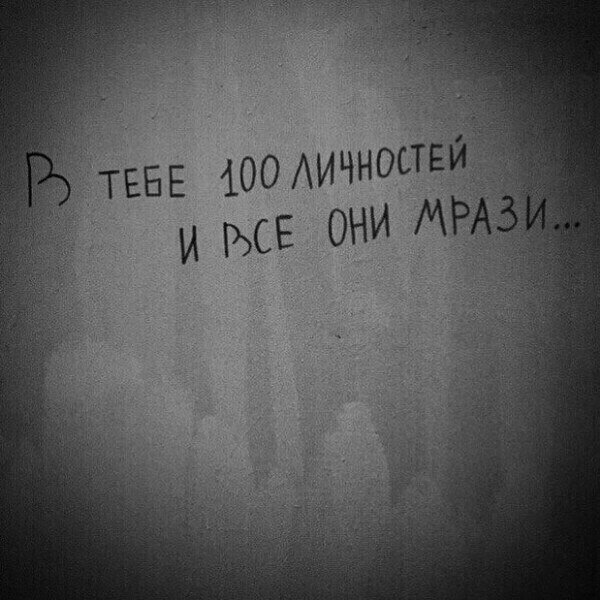 В ТЕБЕ 100 ЛИЧНОСТЕЙ
И ВСЕ ОНИ МРАЗИ...